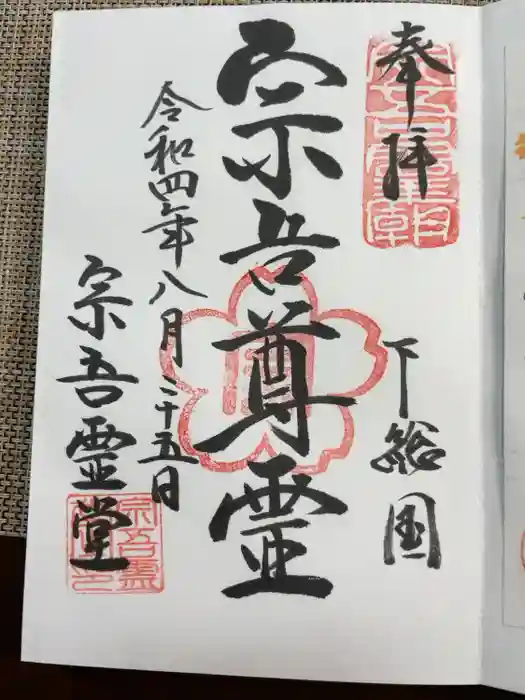 奉拝
下総国
宗吾尊霊
令和四年八月二十五日
宗吾霊堂